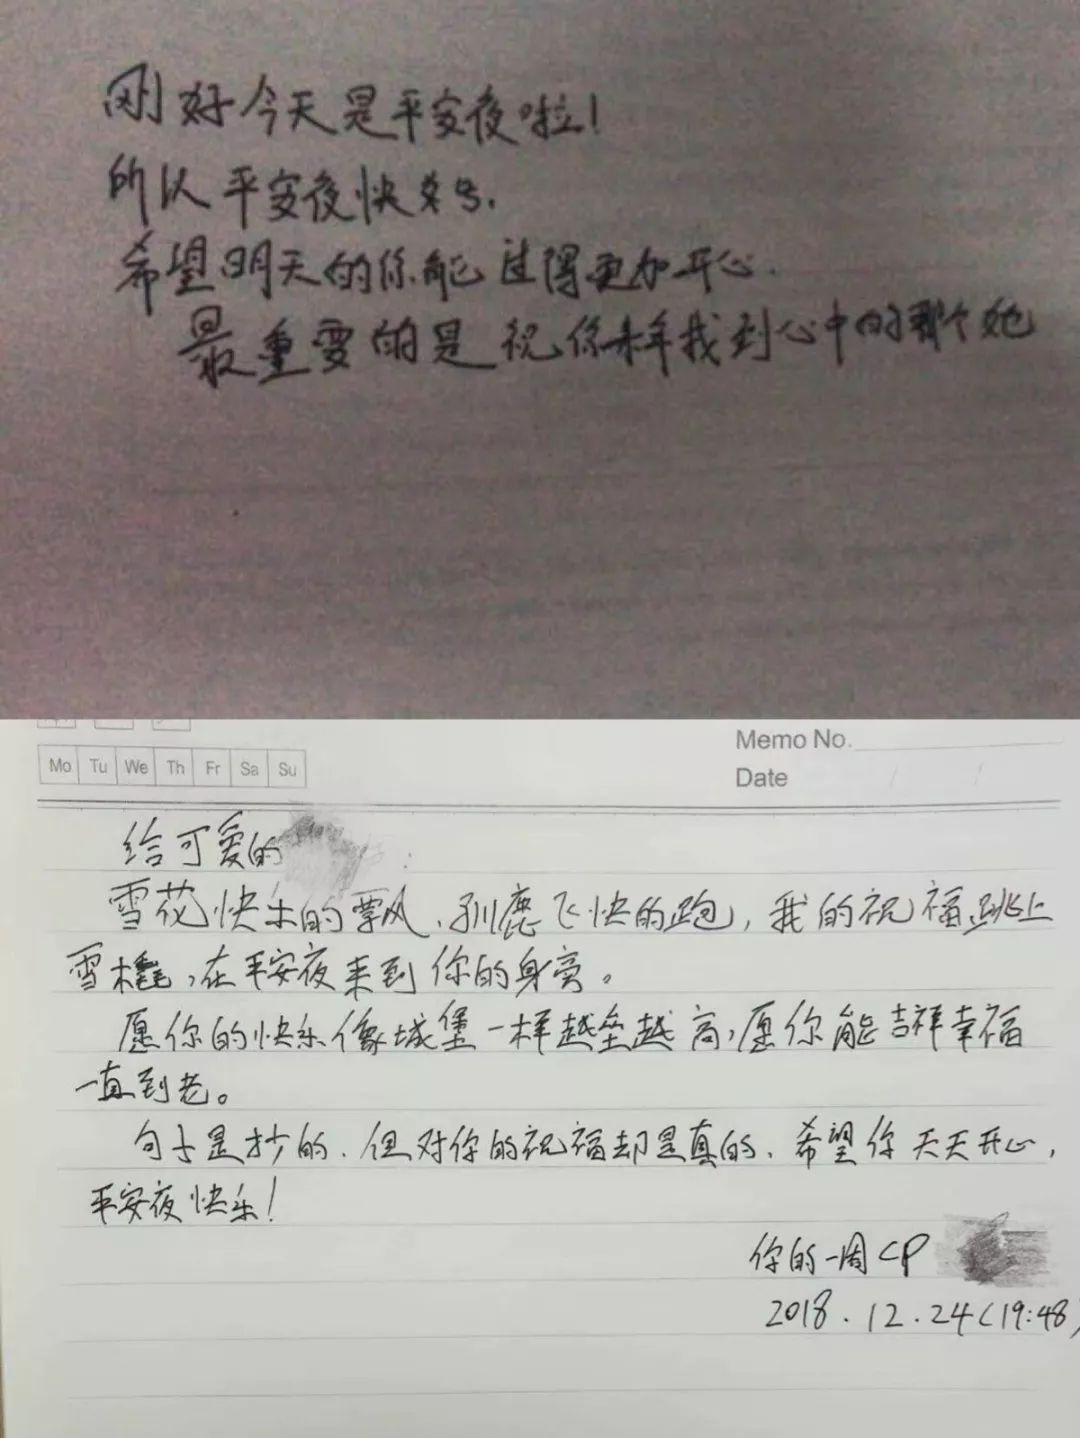 刚好今天是平安夜啦！
所以平安夜快乐.
希望明天的你能过得更加开心.
最重要的是祝你来年找到心中的那个她
Memo No.
Mo Tu We Th Fr Sa Su
Date / /
给可爱的 :
雪花快乐的飘风、驯鹿飞快的跑，我的祝福跳上
雪橇，在平安夜来到你的身旁。
愿你的快乐像城堡一样越垒越高，愿你能吉祥幸福
一直到老。
句子是抄的、但对你的祝福却是真的、希望你天天开心，
平安夜快乐！
你的一周CP
2018.12.24(19:48)